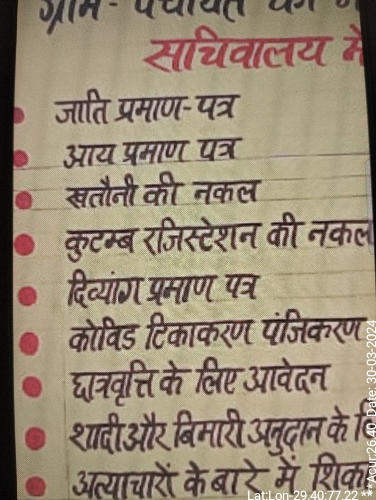 ग्राम-पंचायत
सचिवालय में
जाति प्रमाण-पत्र
आय प्रमाण पत्र
खतौनी की नकल
कुटम्ब रजिस्टेशन की नकल
दिव्यांग प्रमाण पत्र
कोविड टिकाकरण पंजिकरण
छात्रवृत्ति के लिए आवेदन
शादी और बिमारी अनुदान के
अत्याचारों के बारे में
Lat:Lon-29.40:77.22
**Acur:26.40 Date: 30-03-2024